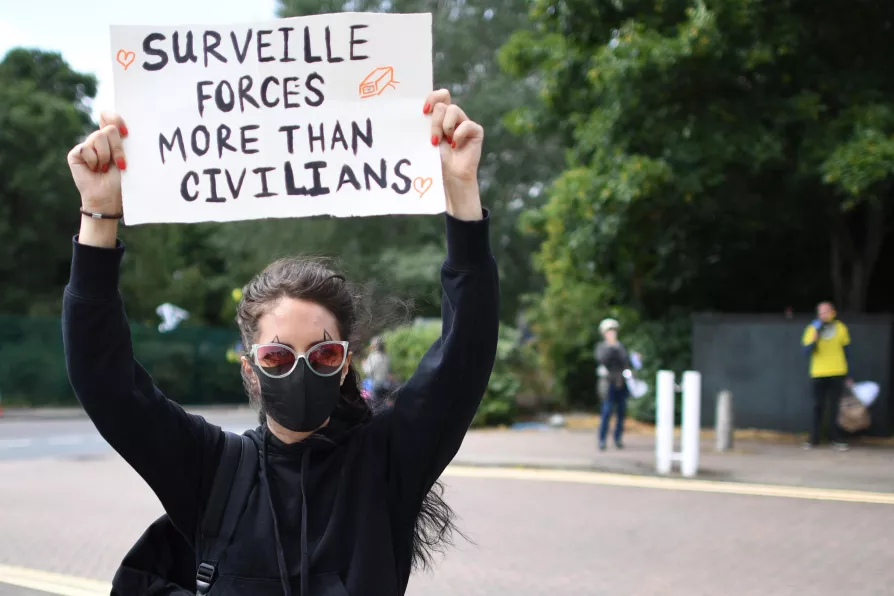 SURVEILLE
FORCES
MORE THAN
CIVILIANS